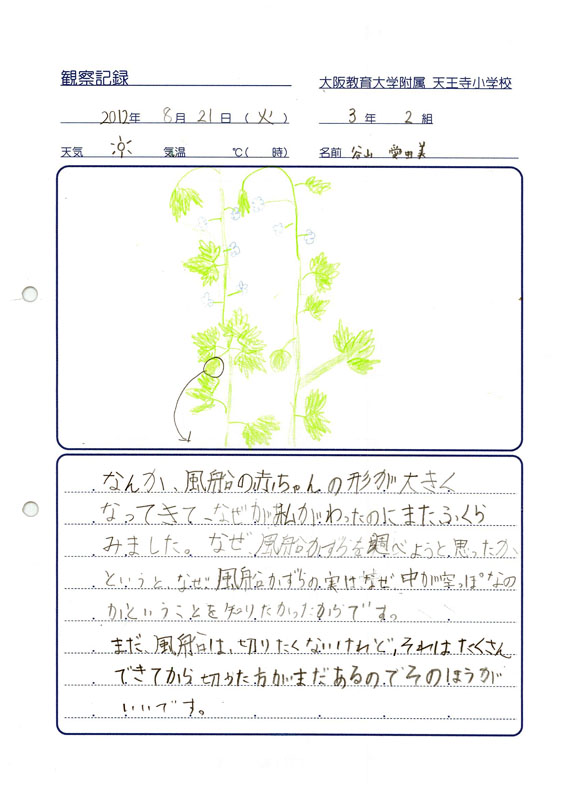 観察記録
大阪教育大学附属 天王寺小学校
2012年 8月21日(火)
3年 2組
天気 気温 ℃( 時)
名前 谷山
なんか、風船の赤ちゃんの形が大きく
なってきて、なぜが私がわったのにまたふくら
みました。なぜ、風船かずらを調べようと思ったか
というと、なぜ風船かずらの実はなぜ中が空っぽなの
かということを知りたかったからです。
まだ、風船は、切りたくないけれど、それはたくさん
できてから切った方がまだあるのでそのほうが
いいです。